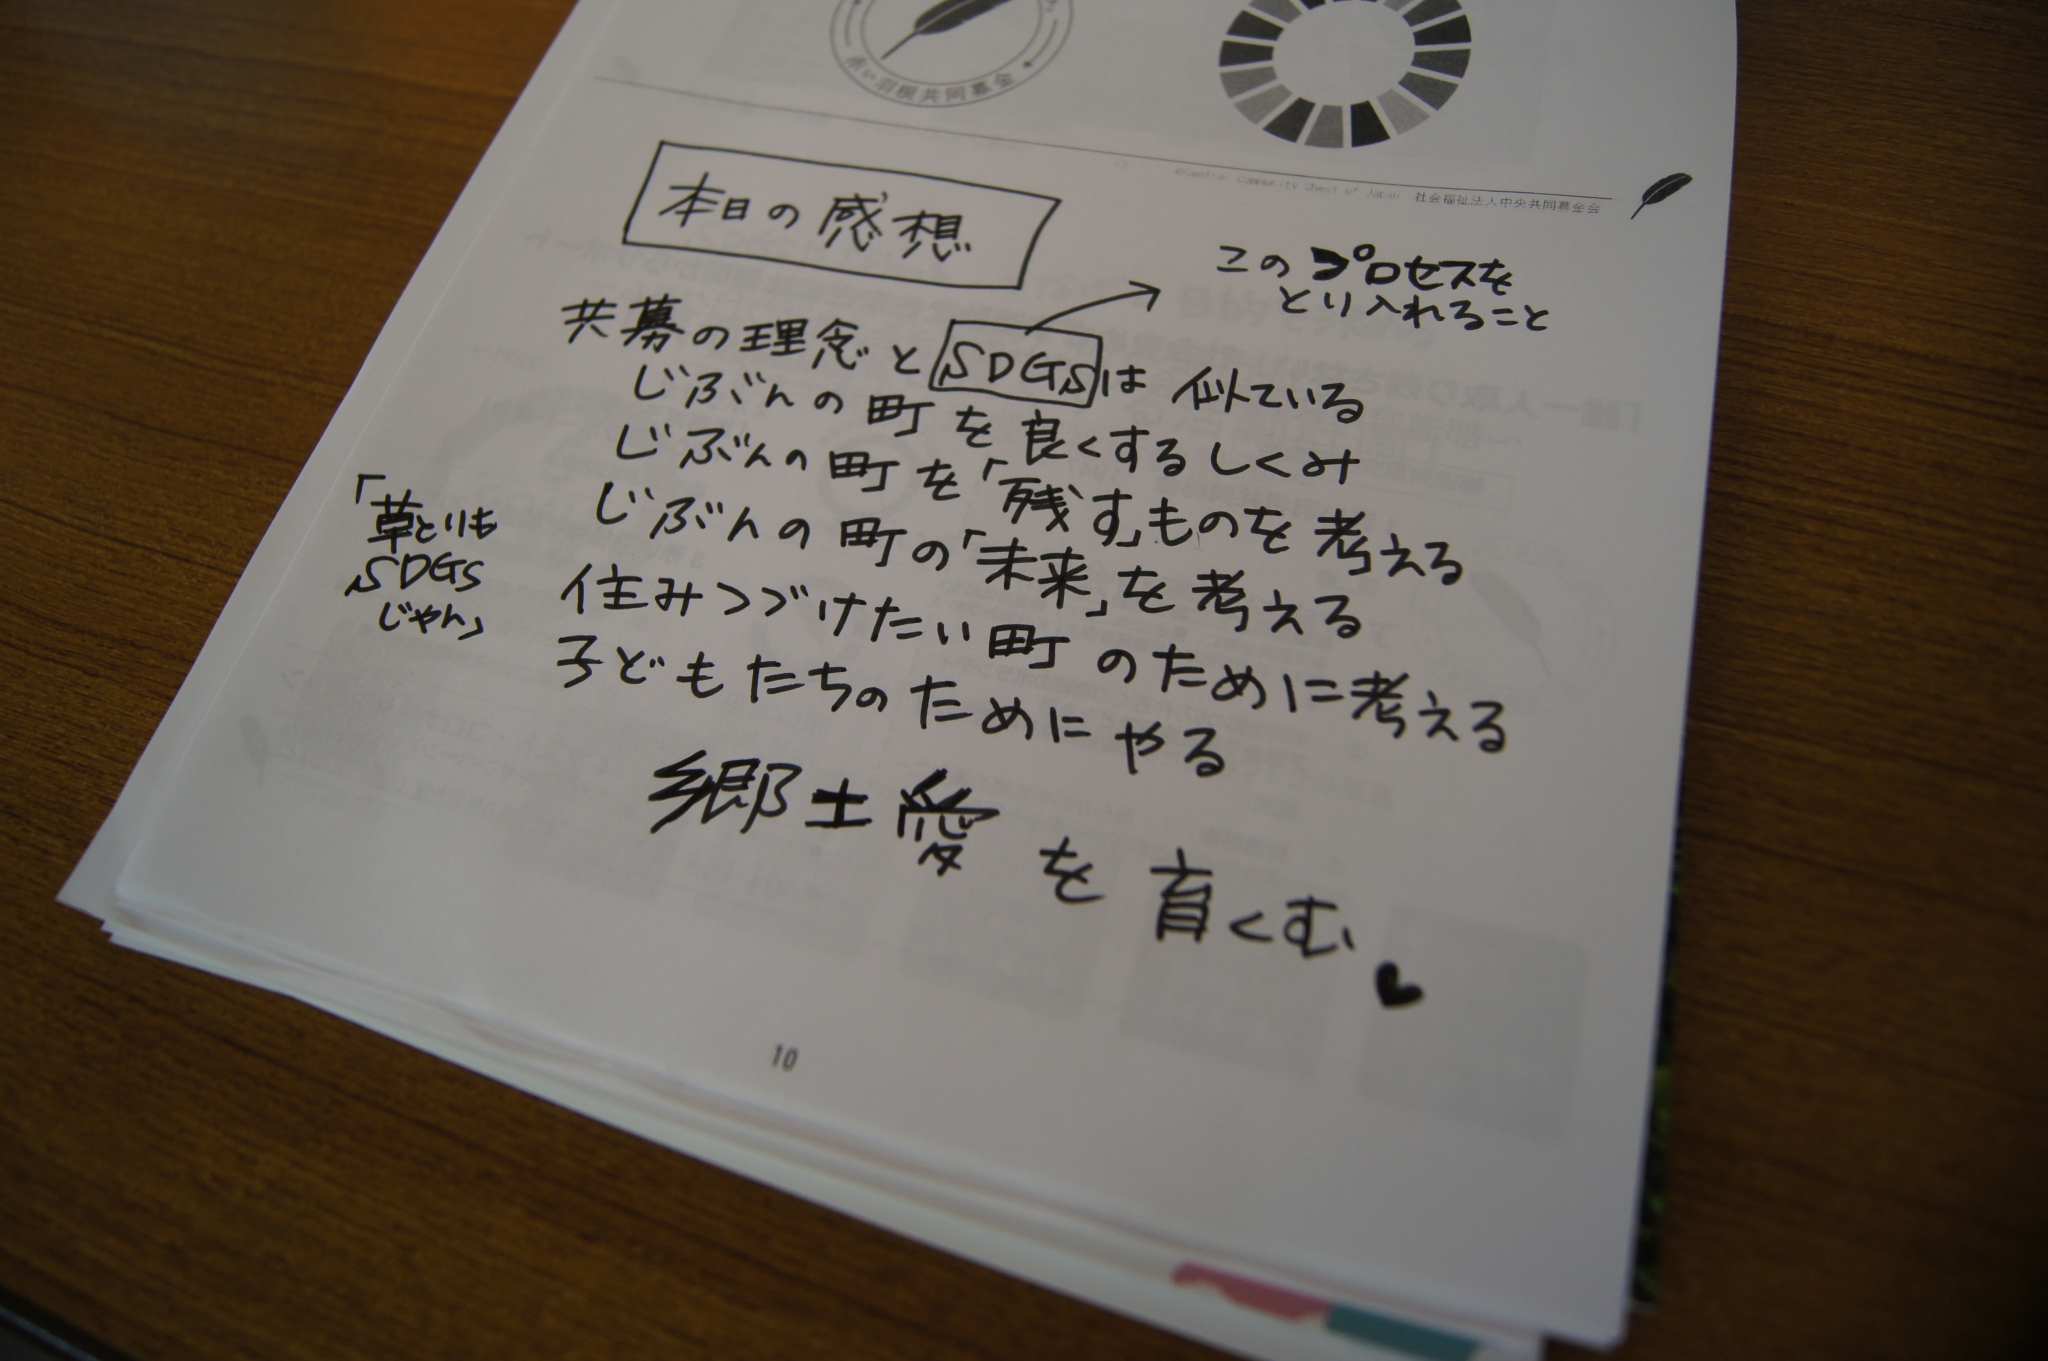 赤い羽根共同募金
Central Community Chest of Japan 社会福祉法人中央共同募金会
本日の感想
このプロセスを
とり入れること
共募の理念とSDGSは似ている
じぶんの町を良くするしくみ
じぶんの町を「残す」ものを考える
じぶんの町の「未来」を考える
住みつづけたい町のために考える
子どもたちのためにやる
「草とりも
SDGS
じゃん」
郷土愛を育くむ
10